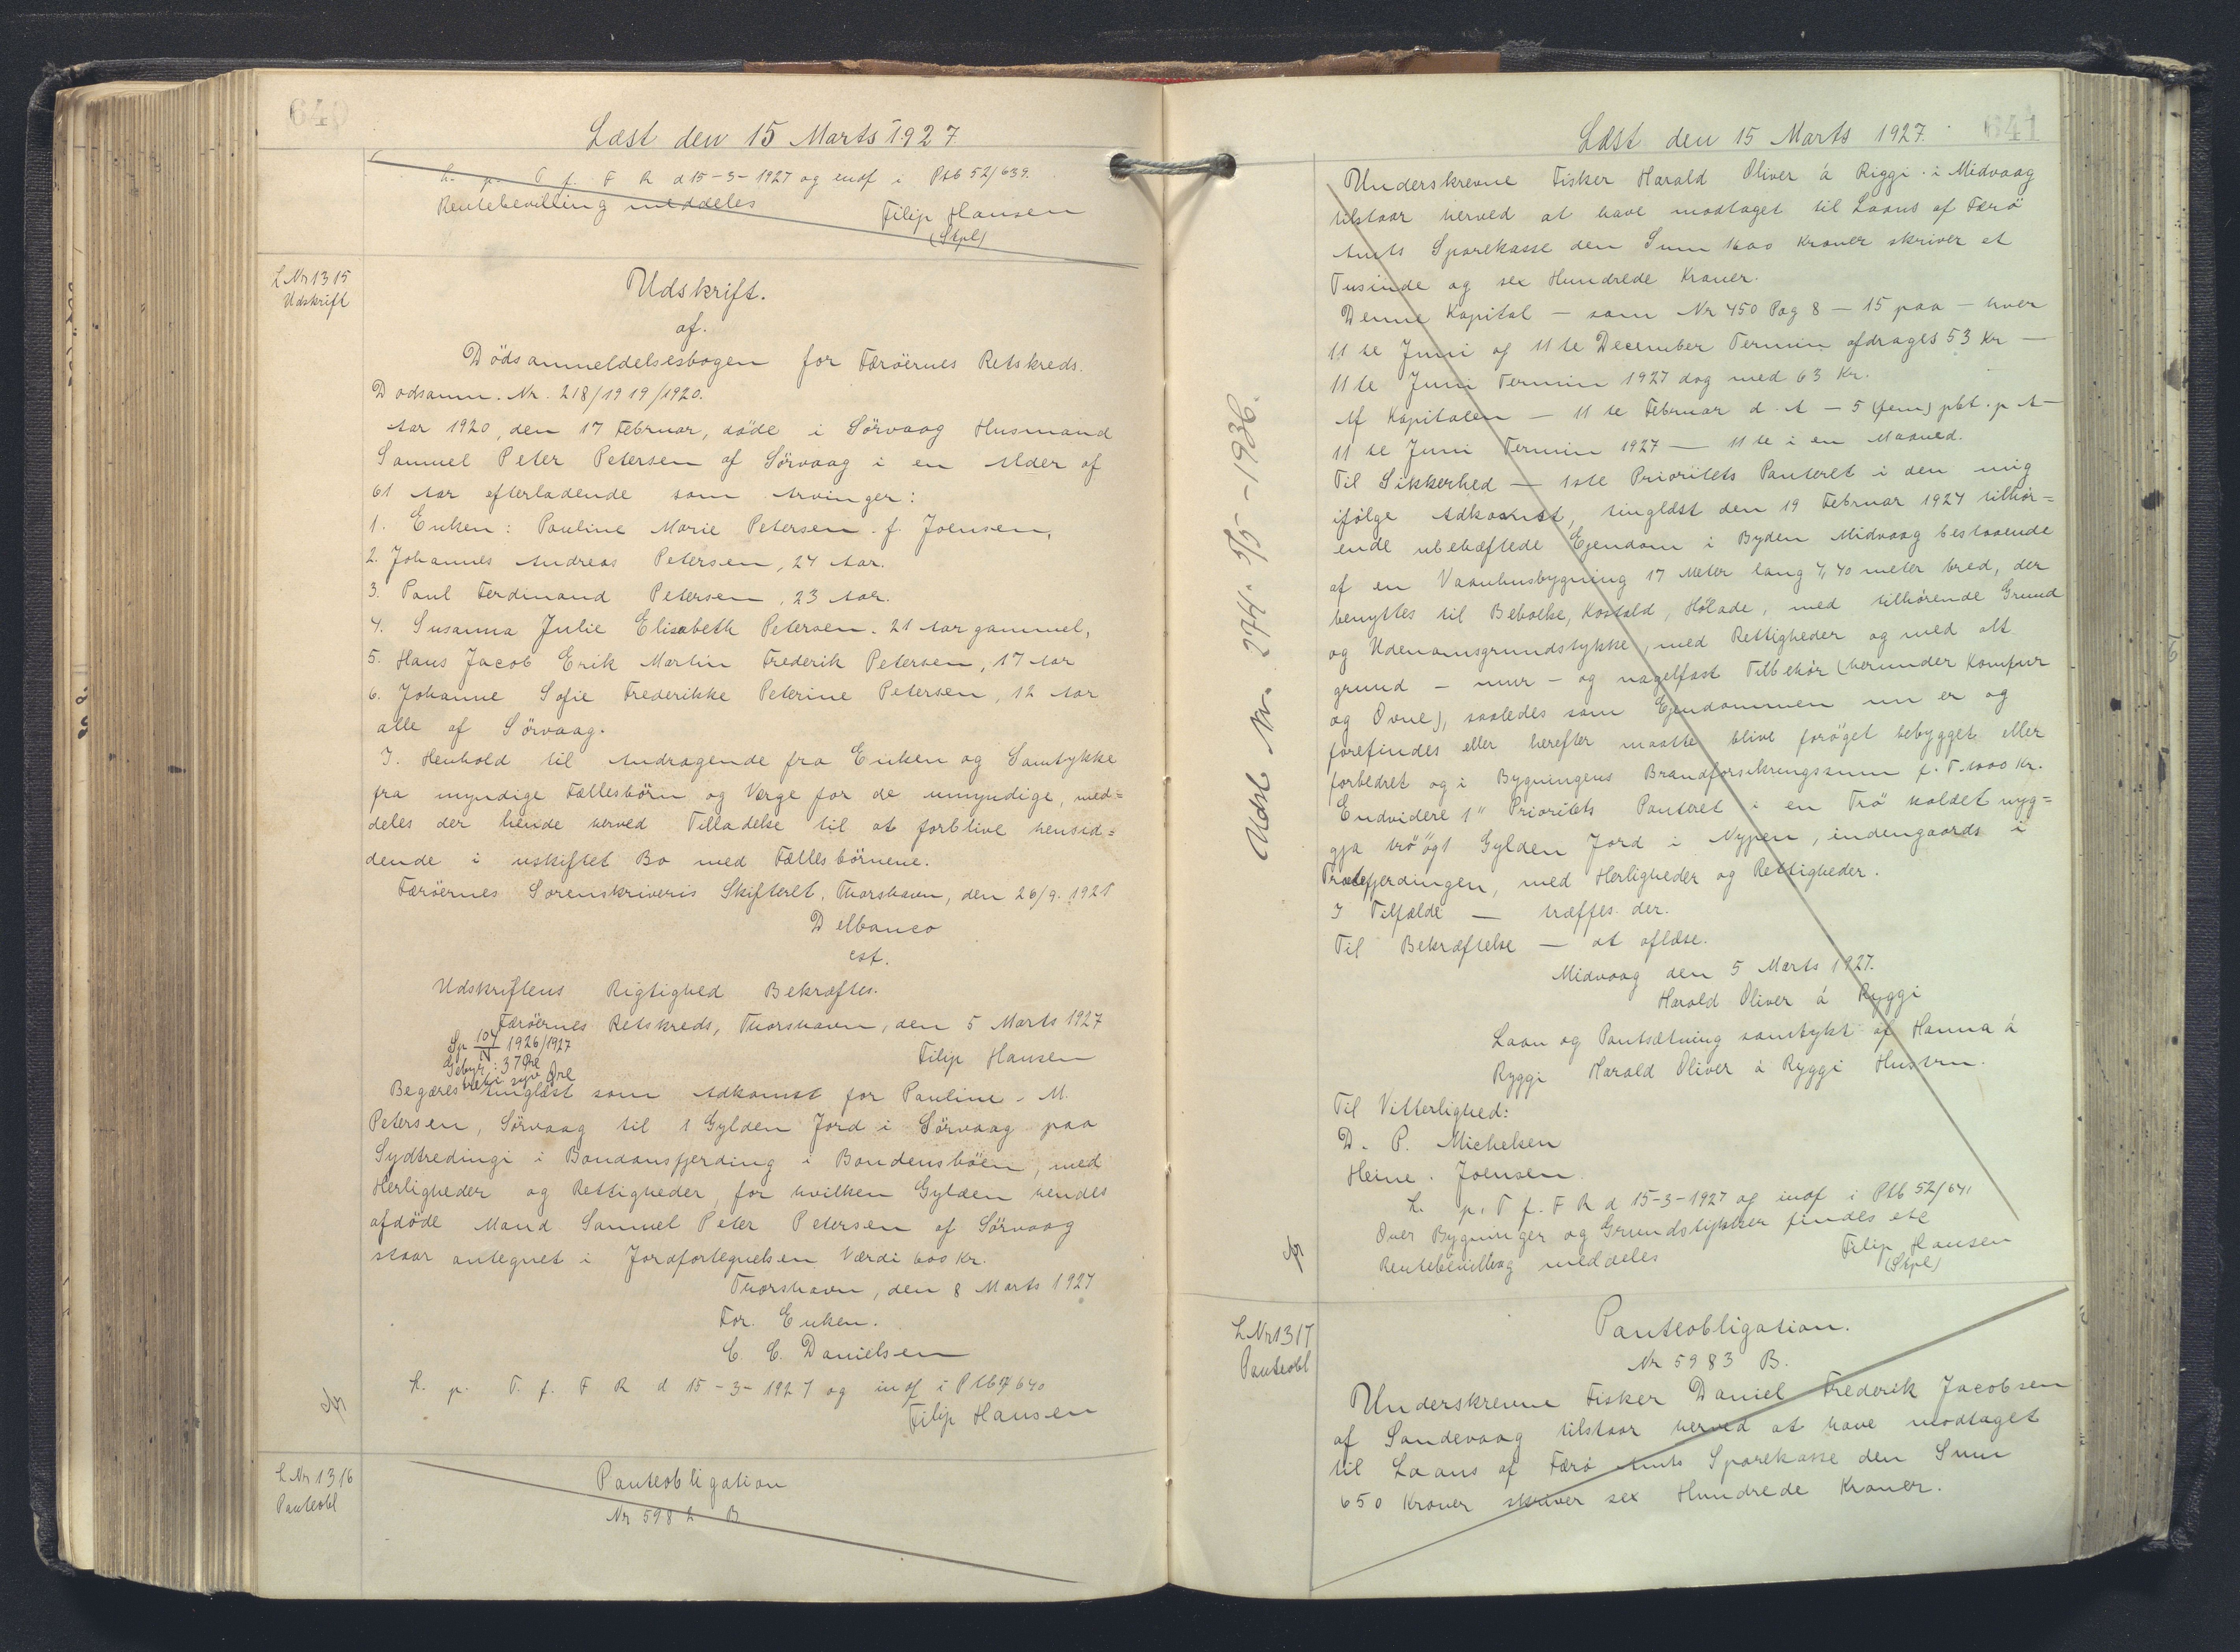 640
Læst den 15 Marts 1927
L. p. T. f. F R d 15-3-1927 og indf i Ptb 52/639.
Rentebevilling meddeles
Filip Hansen
(Skpl)
L Nr 1315
Udskrift
Udskrift.
af.
Dödsanmeldelsesbogen for Færöernes Retskreds.
Dødsanm. Nr. 218/1919/1920.
Aar 1920, den 17 Februar, døde i Sörvaag Husmand
Samuel Peter Petersen af Sörvaag i en Alder af
61 Aar efterladende som Arvinger:
1. Enken: Pauline Marie Petersen f. Joensen,
2. Johannes Andreas Petersen, 24 Aar.
3. Paul Ferdinand Petersen, 23 Aar.
4. Susanna Julie Elisabeth Petersen. 21 Aar gammel,
5. Hans Jacob Erik Martin Frederik Petersen, 17 Aar
6. Johanne Sofie Frederikke Peterine Petersen, 12 Aar
alle af Sörvaag.
I. Henhold til Andragende fra Enken og Samtykke
fra myndige Fællesbörn og Værge for de umyndige, med=
deles der hende herved Tilladelse til at forblive hensid=
dende i uskiftet Bo med Fællesbörnene.
Færöernes Sorenskriveris Skifteret, Thorshavn, den 26/9. 1921
Delbanco
cst.
Udskriftens Rigtighed Bekræftes.
Færöernes Retskreds, Thorshavn, den 5 Marts 1927
Sp 104/N 1926/1927
Gebyr: 37 Øre
Filip Hansen
tretisyv Øre
Begæres tinglæst som Adkomst for Pauline. M.
Petersen, Sörvaag til 1 Gylden Jord i Sörvaag paa
Sydtredingi i Bondansfjerding i Bondensböen, med
Herligheder og Rettigheder, for hvilken Gylden hendes
afdöde Mand Samuel Peter Petersen af Sörvaag
staar antegnet i Jordfortegnelsen Værdi 600 Kr.
Thorshavn, den 8 Marts 1927
For. Enken.
C. C. Danielsen
L. p. T. f. F R d 15-3-1927 og indf i Ptb 640
Filip Hansen
L Nr 1316
Panteobl
Panteobligation
Nr 598 B
641
Læst den 15 Marts 1927.
Underskrevne Fisker Harald Oliver á Riggi i Midvaag
tilstaar herved at have modtaget til Laans af Færö
Amts Sparekasse den Sum 1600 Kroner skriver et
Tusinde og sex Hundrede Kroner.
Denne Kapital — som Nr 450 Pag 8 — 15 paa — hver
11 te Juni og 11 te December Termin afdrages 53 Kr —
11 te Juni Termin 1927 dog med 63 Kr.
Af Kapitalen — 11 te Februar d. A — 5 (fem) pct. p A —
11 te Juni Termin 1927 — 11 te i en Maaned.
Til Sikkerhed — 1ste Prioritets Panteret i den mig
ifölge Adkomst, tinglæst den 19 Februar 1927 tilhör=
ende ubehæftede Ejendom i Byden Midvaag bestaaende
af en Vaanhusbygning 17 Meter lang 7,40 meter bred, der
benyttes til Beboelse, Kostald, Hölade, med tilhørende Grund
og Udenomsgrundstykke, med Rettigheder og med alt
grund - mur - og nagelfast Tilbehör (herunder Komfur
og Ovne), saaledes som Ejendommen nu er og
forefindes eller herefter maatte blive foröget bebygget eller
forbedret og i Bygningens Brandforsikringssum f. T. 1000 Kr.
Endvidere 1" Prioritets Panteret i en Trö kaldet nyg=
gja trö ögt Gylden Jord i Nypen, indengaards i
Trælefjerdingen, med Herligheder og Rettigheder.
I Tilfælde — træffes der.
Til Bekræftelse — at aflæse.
Midvaag den 5 Marts 1927.
Harald Oliver á Ryggi
Laan og Pantsætning samtykt af Hanna á
Ryggi Harald Oliver á Ryggi Hustru.
Til Vitterlighed:
D. P. Michelsen
Heine. Joensen.
L. p. T f. F R d 15-3-1927 og indf i Ptb 52/641
Over Bygninger og Grundstykker findes etc
Rentebevilling meddeles
Filip Hansen
(Skpl)
Udsl Nr. 274. 5/5-1936.
L Nr 1317
Panteobl
Panteobligation.
Nr 5983 B.
Underskrevne Fisker Daniel Frederik Jacobsen
af Sandevaag tilstaar herved at have modtaget
til Laans af Færö Amts Sparekasse den Sum
650 Kroner skriver sex Hundrede Kroner.